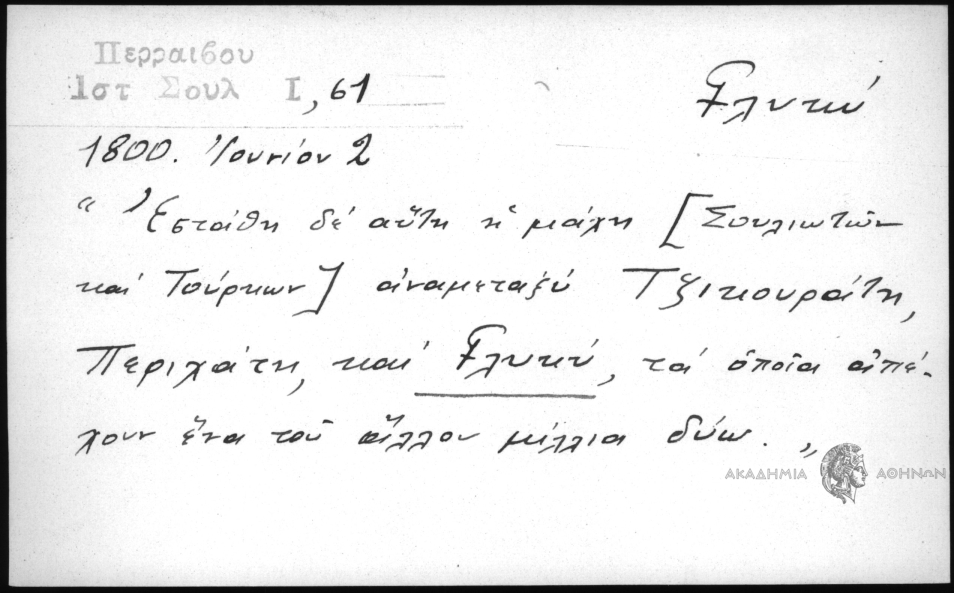 Περραιβου
Ιστ Σουλ Ι, 61
Γλυκύ
1800. Ἰουνίου 2
“ Ἐστάθη δέ αὕτη ἡ μάχη [Σουλιωτῶν
καί Τούρκων] ἀναμεταξύ Τζικουράτη,
Περιχάτη, καί Γλυκύ, τά ὁποῖα ἀπέ-
χουν ἕνα τοῦ ἄλλου μίλλια δύω. „
ΑΚΑΔΗΜΙΑ ΑΘΗΝΩΝ